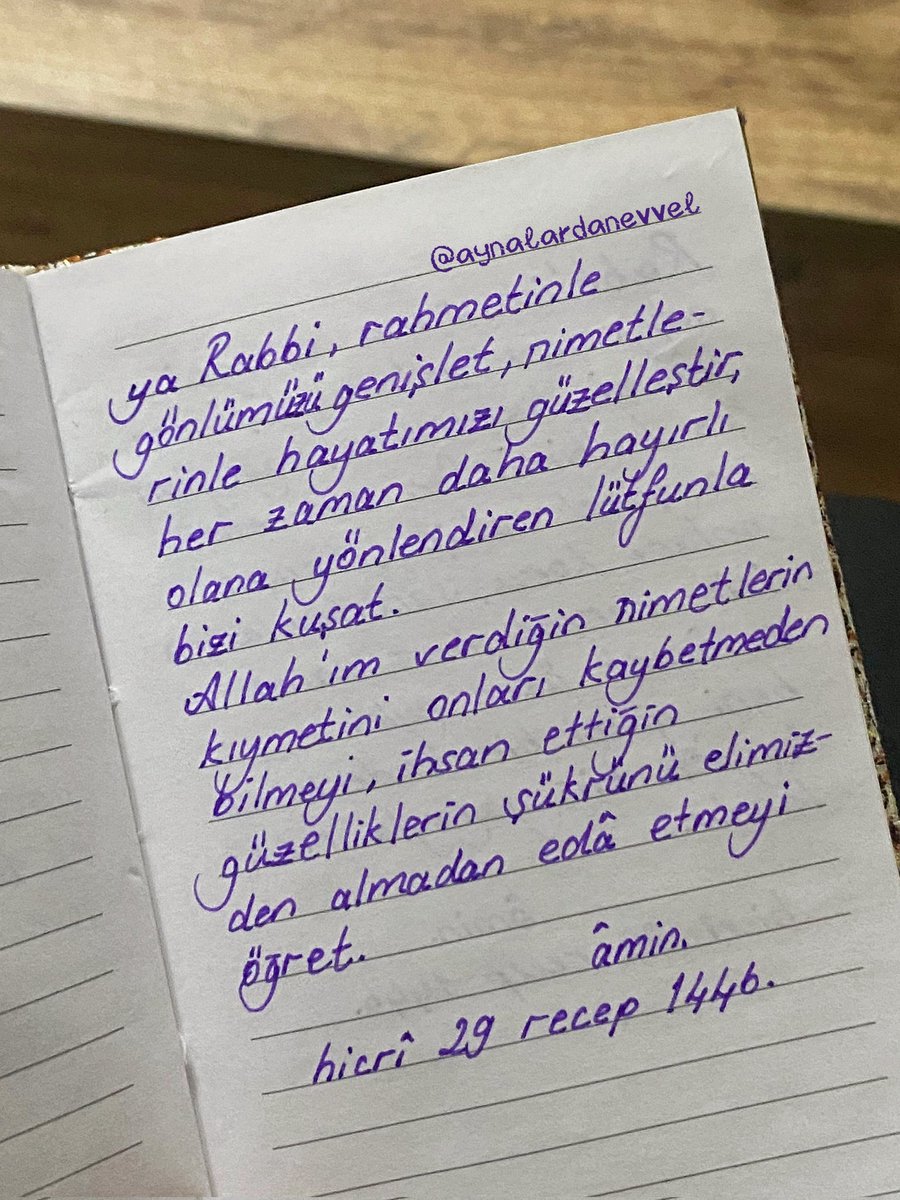 @aynalardanevvel
ya Rabbi, rahmetinle
gönlümüzü genişlet, nimetle-
rinle hayatımızı güzelleştir,
her zaman daha hayırlı
olana yönlendiren lütfunla
bizi kuşat.
Allah'ım verdiğin nimetlerin
kıymetini onları kaybetmeden
bilmeyi, ihsan ettiğin
güzelliklerin şükrünü elimiz-
den almadan edâ etmeyi
öğret. âmin.
hicrî 29 recep 1446.